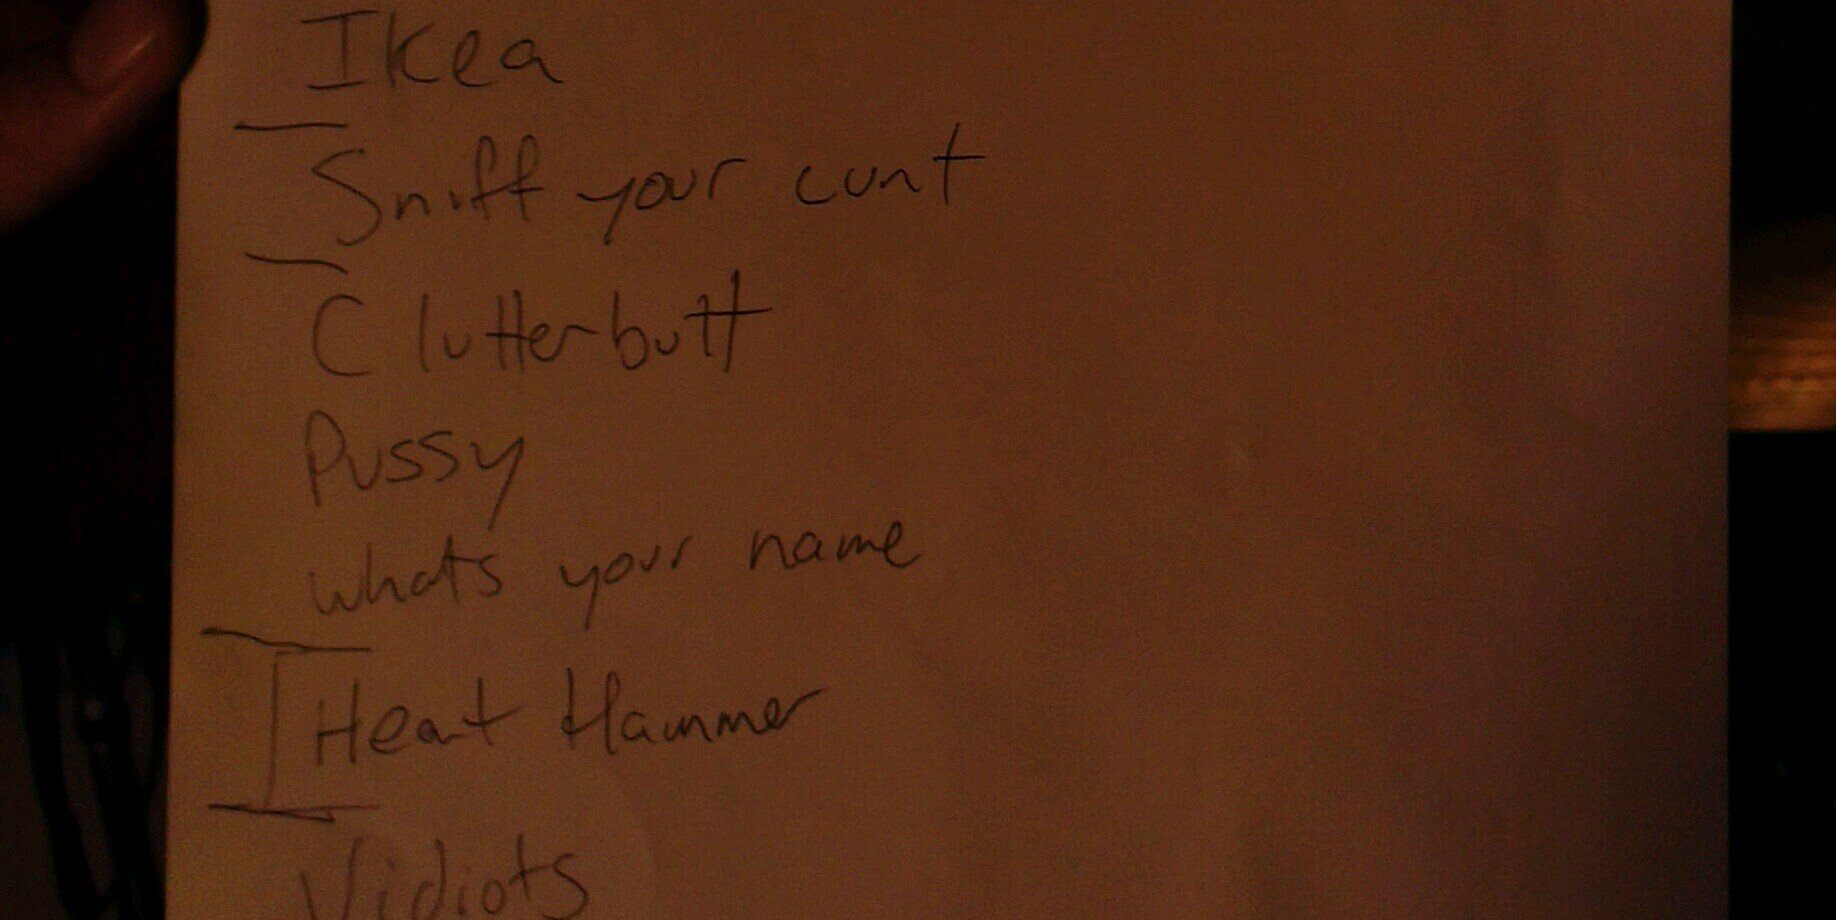 Ikea
Sniff your cunt
Clutterbutt
Pussy
whats your name
Heat Hammer
Vidiots